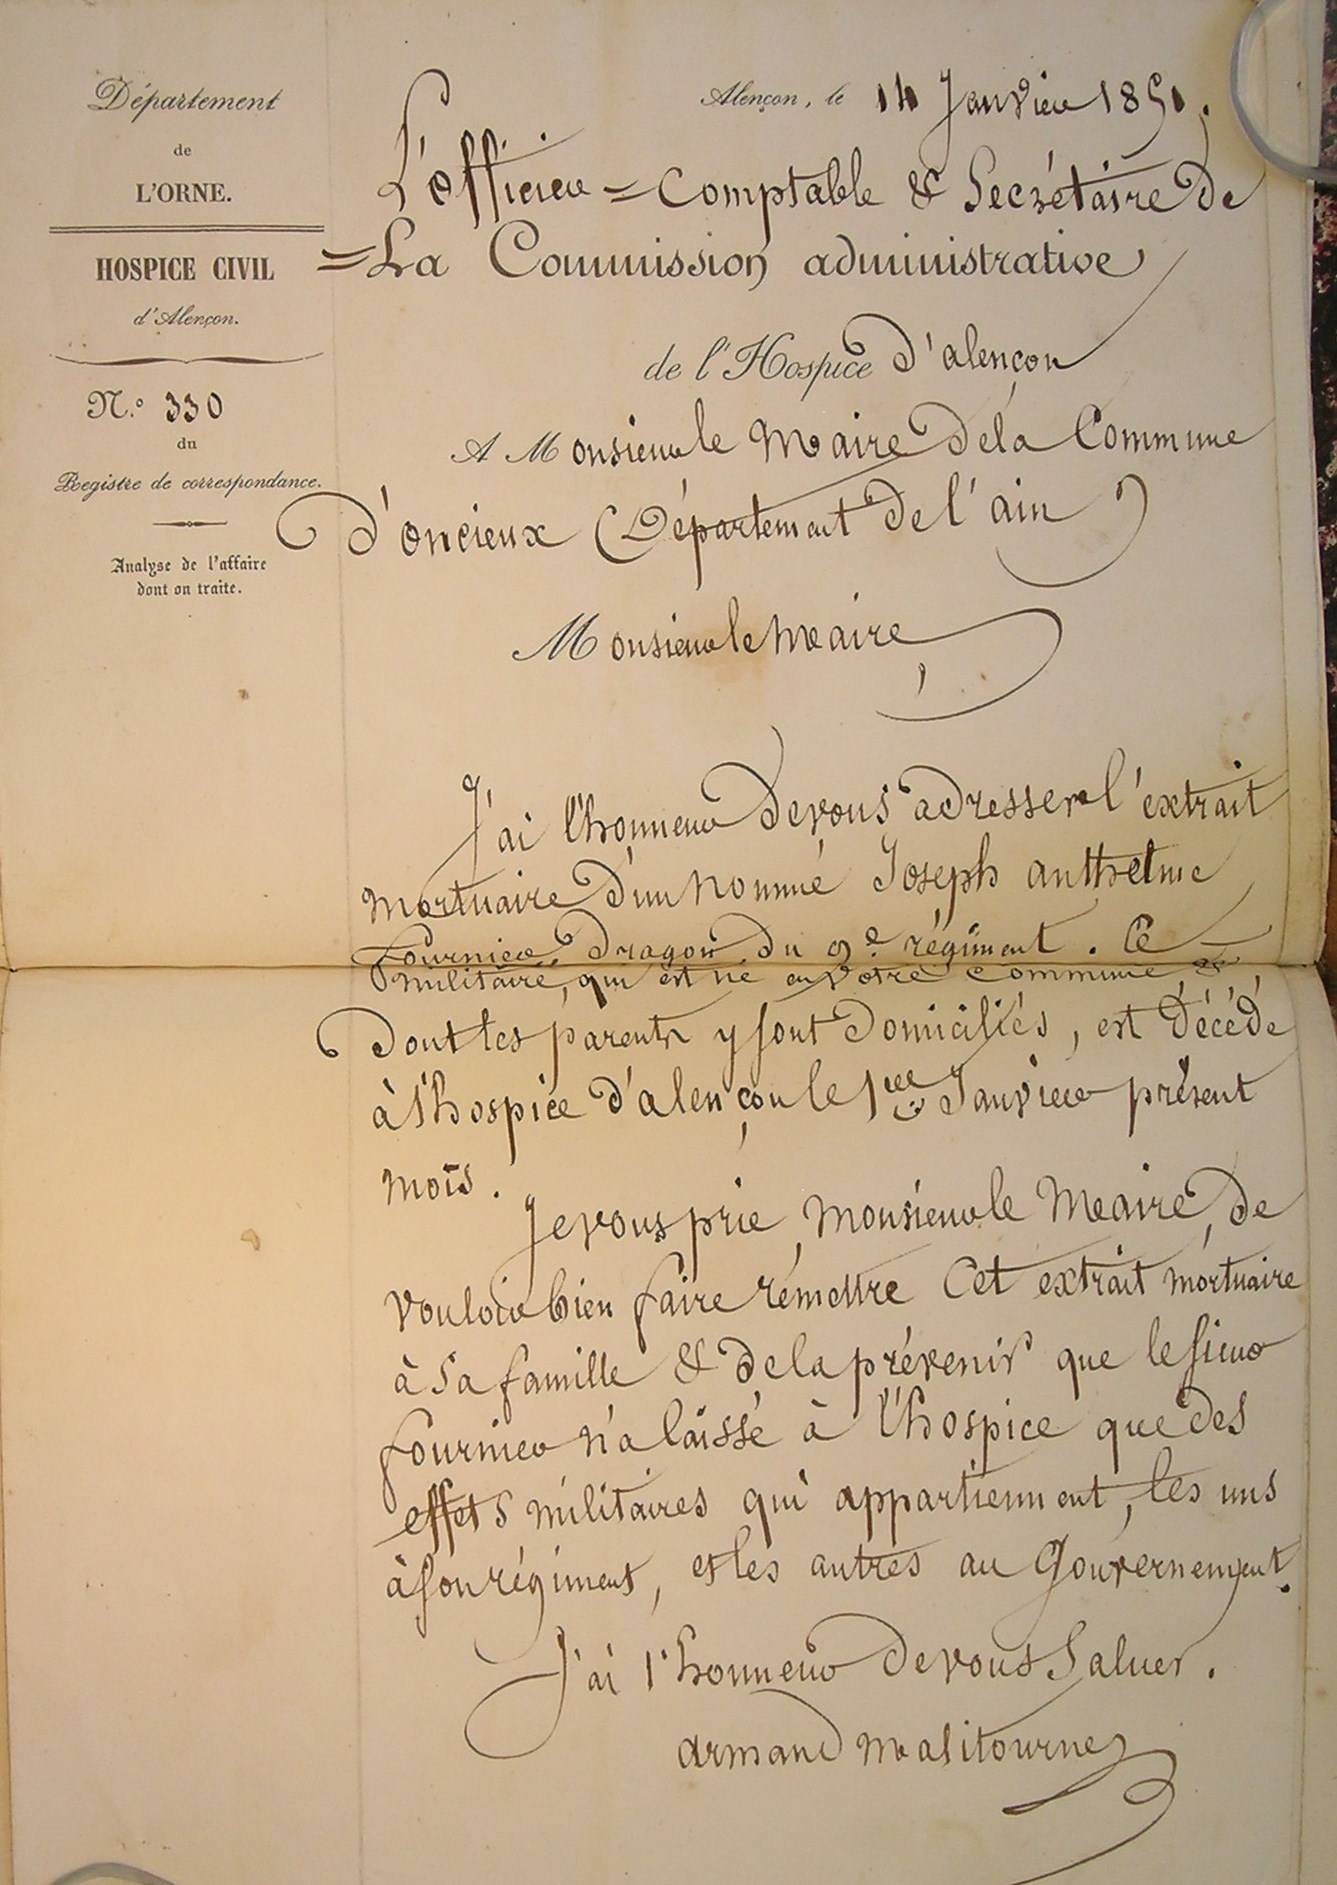 Département
de
L'ORNE.
HOSPICE CIVIL
d'Alençon.
N.° 330
du
Registre de correspondance.
Analyse de l'affaire
dont on traite.
Alençon, le 14 Janvier 1851.
L'officier = Comptable & Secrétaire de
= La Commission administrative
de l'Hospice d'alençon
A Monsieur le Maire de la Commune
d'oncieux (Département de l'ain)
Monsieur le Maire,
J'ai l'honneur de vous adresser l'extrait
mortuaire d'un nommé Joseph anthelme
fournier, Dragon du 9e régiment. Ce
militaire, qui est né en votre commune &
dont les parents y sont domiciliés, est décédé
à l'hospice d'alençon le 1er Janvier présent
mois.
Je vous prie, Monsieur le Maire, de
vouloir bien faire remettre cet extrait mortuaire
à sa famille & de la prévenir que le sieur
fournier n'a laissé à l'hospice que des
effets militaires qui appartiennent, les uns
à son régiment, et les autres au Gouvernement.
J'ai l'honneur de vous saluer.
armand malitourne